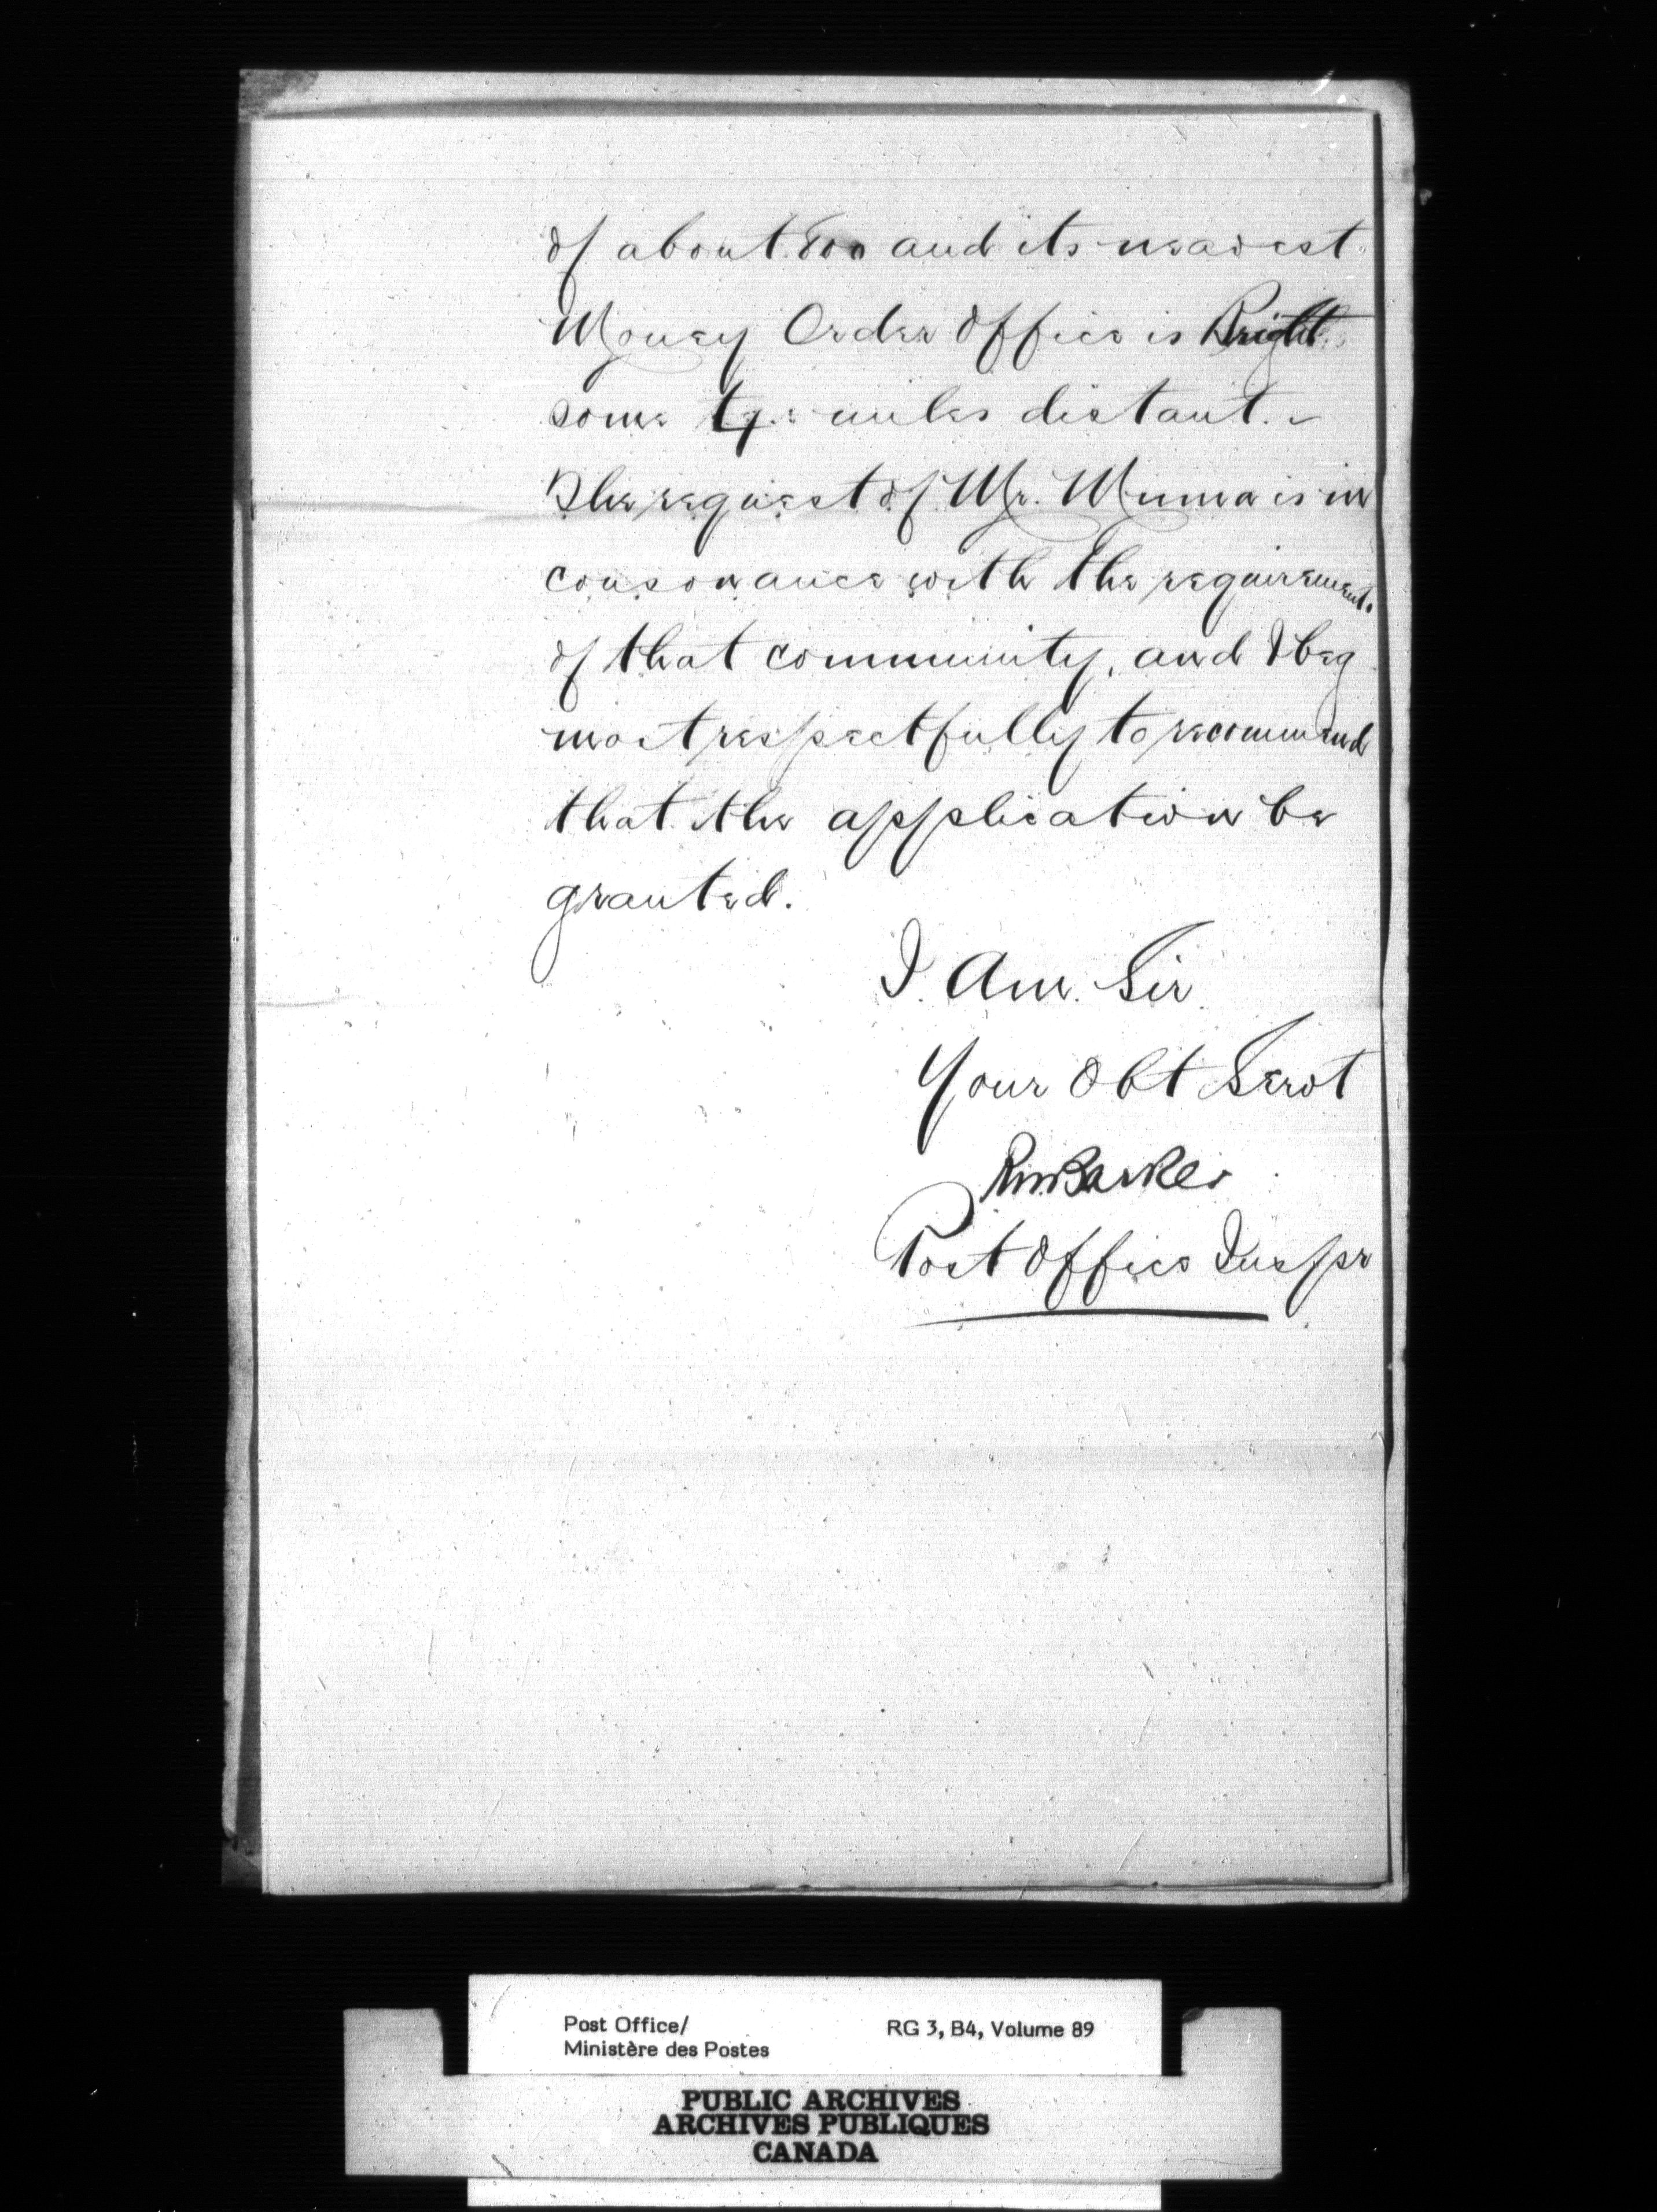 of about 800 and its nearest
Money Order Office is Bright
some miles distant. –
The request of Mr. Mumma is in
consonance with the requirements
of that community, and I beg
most respectfully to recommend
that the application be
granted.
I Am Sir
Your Obt Servt
RW Barker
Post Office Inspr
Post Office/
Ministère des Postes
RG 3, B4, Volume 89
PUBLIC ARCHIVES
ARCHIVES PUBLIQUES
CANADA